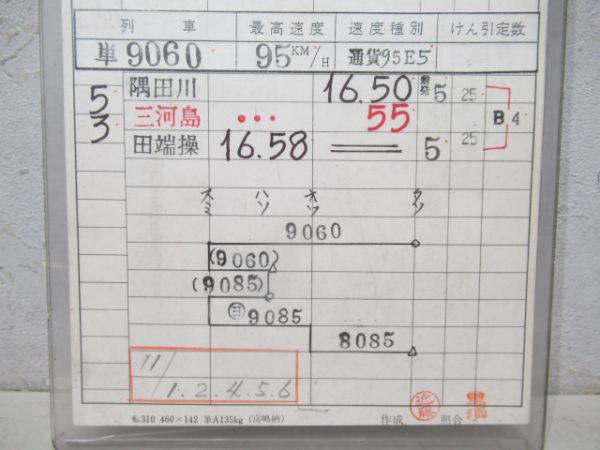 列車 最高速度 速度種別 けん引定数
単9060 95KM/H 通貨95E5
5 隅田川 16.50 5 25
3 三河島 ••• 55 B4
田端操 16.58 ＝ 5 25
スミ ハソ オソ タソ
9060
(9060)
(9085)
9085
8085
11/1.2.4.5.6
転310 460×142 筆A135kg (宮嶋納) 作成 近藤 照合